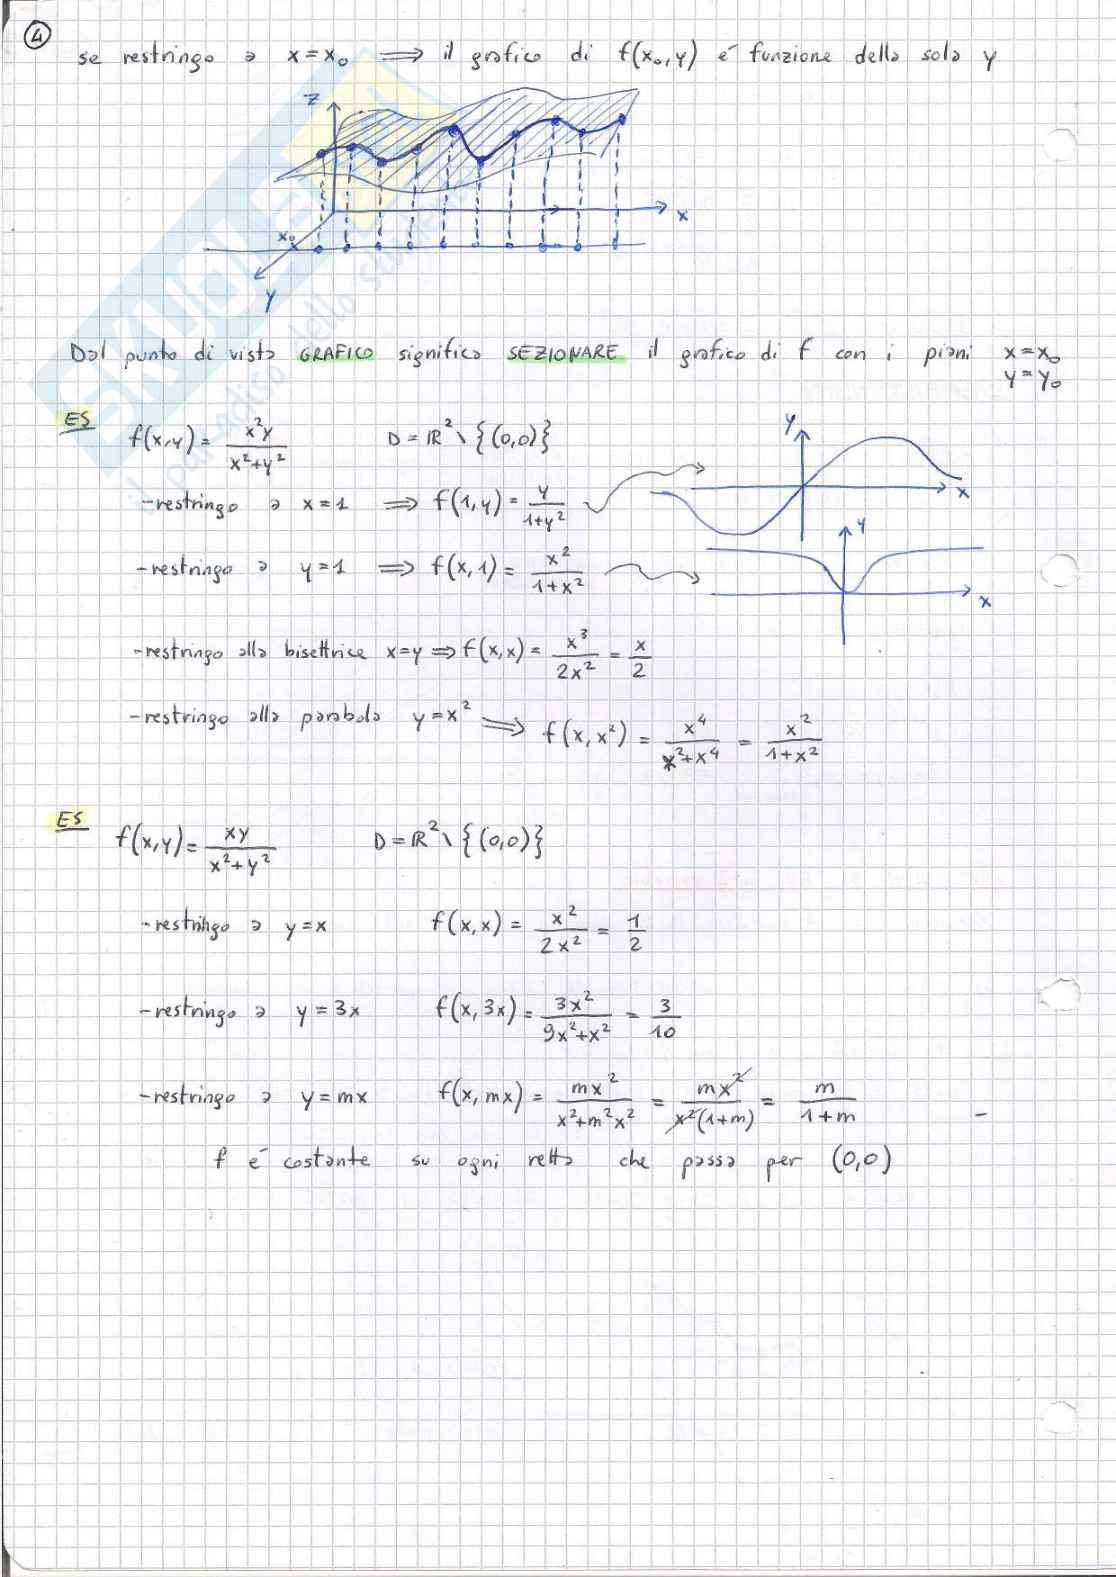 4
se restringo a x = x₀ ⟹ il grafico di f(x₀,y) é funzione della sola y
z
x
x₀
y
Dal punto di vista GRAFICO significa SEZIONARE il grafico di f con i piani x = x₀
y = y₀
ES f(x,y) = x²y / (x²+y²) D = ℝ² \ {(0,0)}
y
x
- restringo a x = 1 ⟹ f(1,y) = y / (1+y²)
y
x
- restringo a y = 1 ⟹ f(x,1) = x² / (1+x²)
- restringo alla bisettrice x=y ⟹ f(x,x) = x³ / 2x² = x / 2
- restringo alla parabola y = x² ⟹ f(x,x²) = x⁴ / (x²+x⁴) = x² / (1+x²)
ES f(x,y) = xy / (x²+y²) D = ℝ² \ {(0,0)}
- restringo a y = x f(x,x) = x² / 2x² = 1 / 2
- restringo a y = 3x f(x,3x) = 3x² / (9x²+x²) = 3 / 10
- restringo a y = mx f(x,mx) = mx² / (x²+m²x²) = mx² / (x²(1+m)) = m / (1+m)
f é costante su ogni retta che passa per (0,0)
SKUOLA
il paradiso dello studente